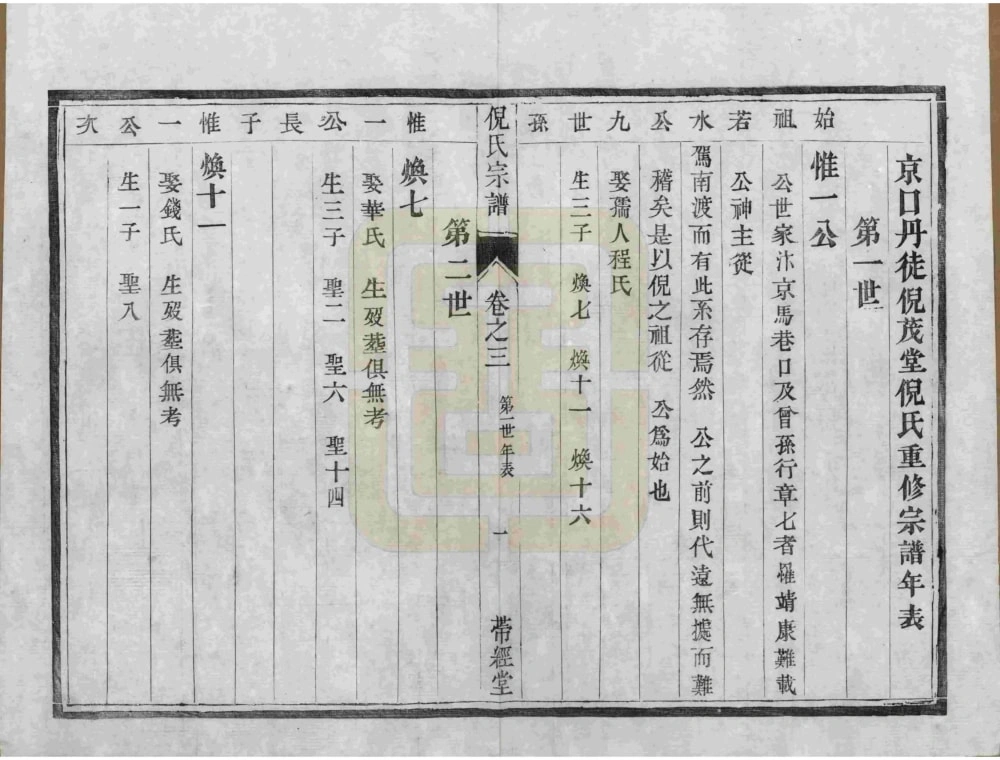 京口丹徒倪茂堂倪氏重修宗譜年表
第一世
始祖若水公九世孫
惟一公
公世家汴京馬巷口及曾孫行章七者罹靖康難載
公神主從
駕南渡而有此系存焉然 公之前則代遠無據而難
稽矣是以倪之祖從 公爲始也
娶孺人程氏
生三子 煥七 煥十一 煥十六
倪氏宗譜 卷之三 第一世年表 一 帶經堂
第二世
惟一公長子
煥七
娶華氏 生歿塟俱無考
生三子 聖二 聖六 聖十四
惟一公次
煥十一
娶錢氏 生歿塟俱無考
生一子 聖八